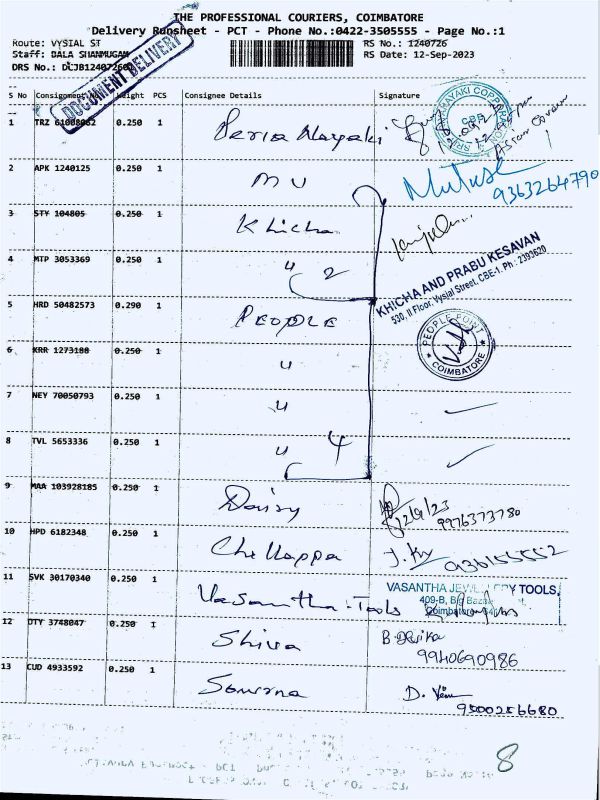 THE PROFESSIONAL COURIERS, COIMBATORE
Delivery Runsheet - PCT - Phone No.:0422-3505555 - Page No.:1
Route: VYSIAL ST
RS No.: 1240726
Staff: BALA SHANMUGAM
RS Date: 12-Sep-2023
DRS No.:
DOCUMENT DELIVERY
S No Consignment No Weight PCS Consignee Details Signature
1 TRZ 61008062 0.250 1 Peria Nayaki
2 APK 1240125 0.250 1 M U
9363264790
3 STY 104805 0.250 1 Khicha
4 MTP 3053369 0.250 1 " 2
KHICHA AND PRABU KESAVAN
530, II Floor, Vysial Street, CBE-1, Ph.: 2393620
5 HRD 50482573 0.290 1 PEOPLE
PEOPLE POINT
COIMBATORE
6 KRR 1273188 0.250 1 "
7 NEY 70050793 0.250 1 "
8 TVL 5653336 0.250 1 " 4
9 MAA 103928185 0.250 1 Daisy 12/9/23
9976373780
10 HPD 6182348 0.250 1 Chellappa
11 SVK 30170340 0.250 1 Vasantha Tools
VASANTHA JEWELLERY TOOLS,
409-B, Big Bazaar
Coimbatore
12 DTY 3748047 0.250 1 Shiva
9940690986
13 CUD 4933592 0.250 1
9500256680
8